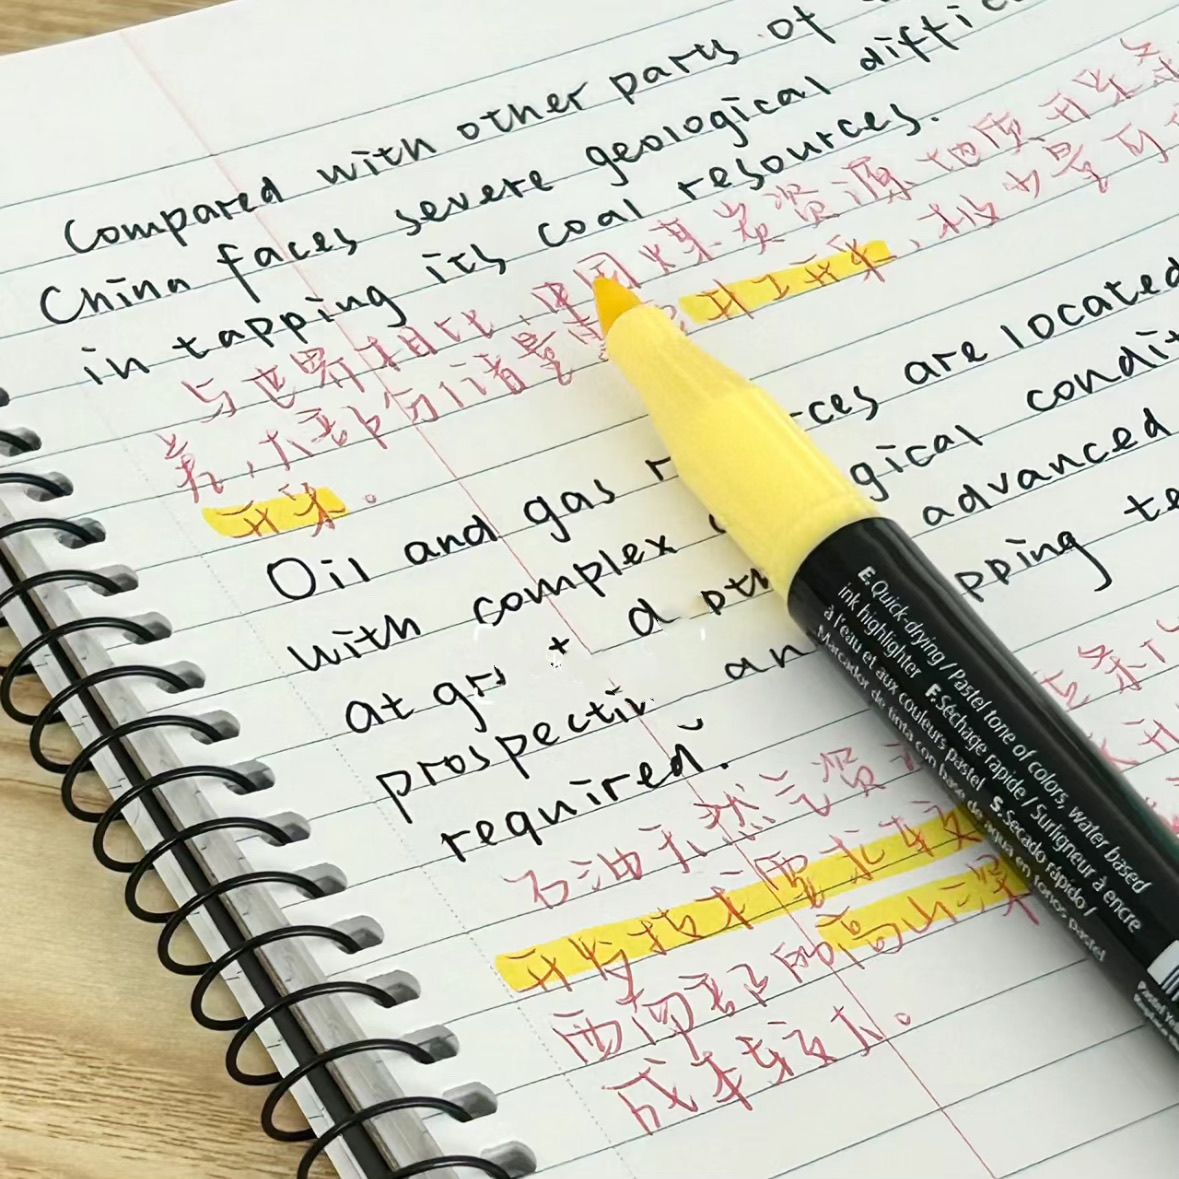 Compared with other parts of
China faces severe geological
in tapping its coal resources.
与世界相比,中国煤炭资源地质开采
差,大部分储量 井工开采,极少量可
开采。
Oil and gas are located
with complex gical
at a advanced
prospecti an pping
required.
石油天然气资
开发技术要求较
西南 的高 深
成本较大。
E.Quick-drying/Pastel tone of colors, water based
ink highlighter F.Séchage rapide/Surligneur à encre
à l'eau et aux couleurs pastel S.Secado rápido/
Marcador de tinta con base de agua en tonos pastel